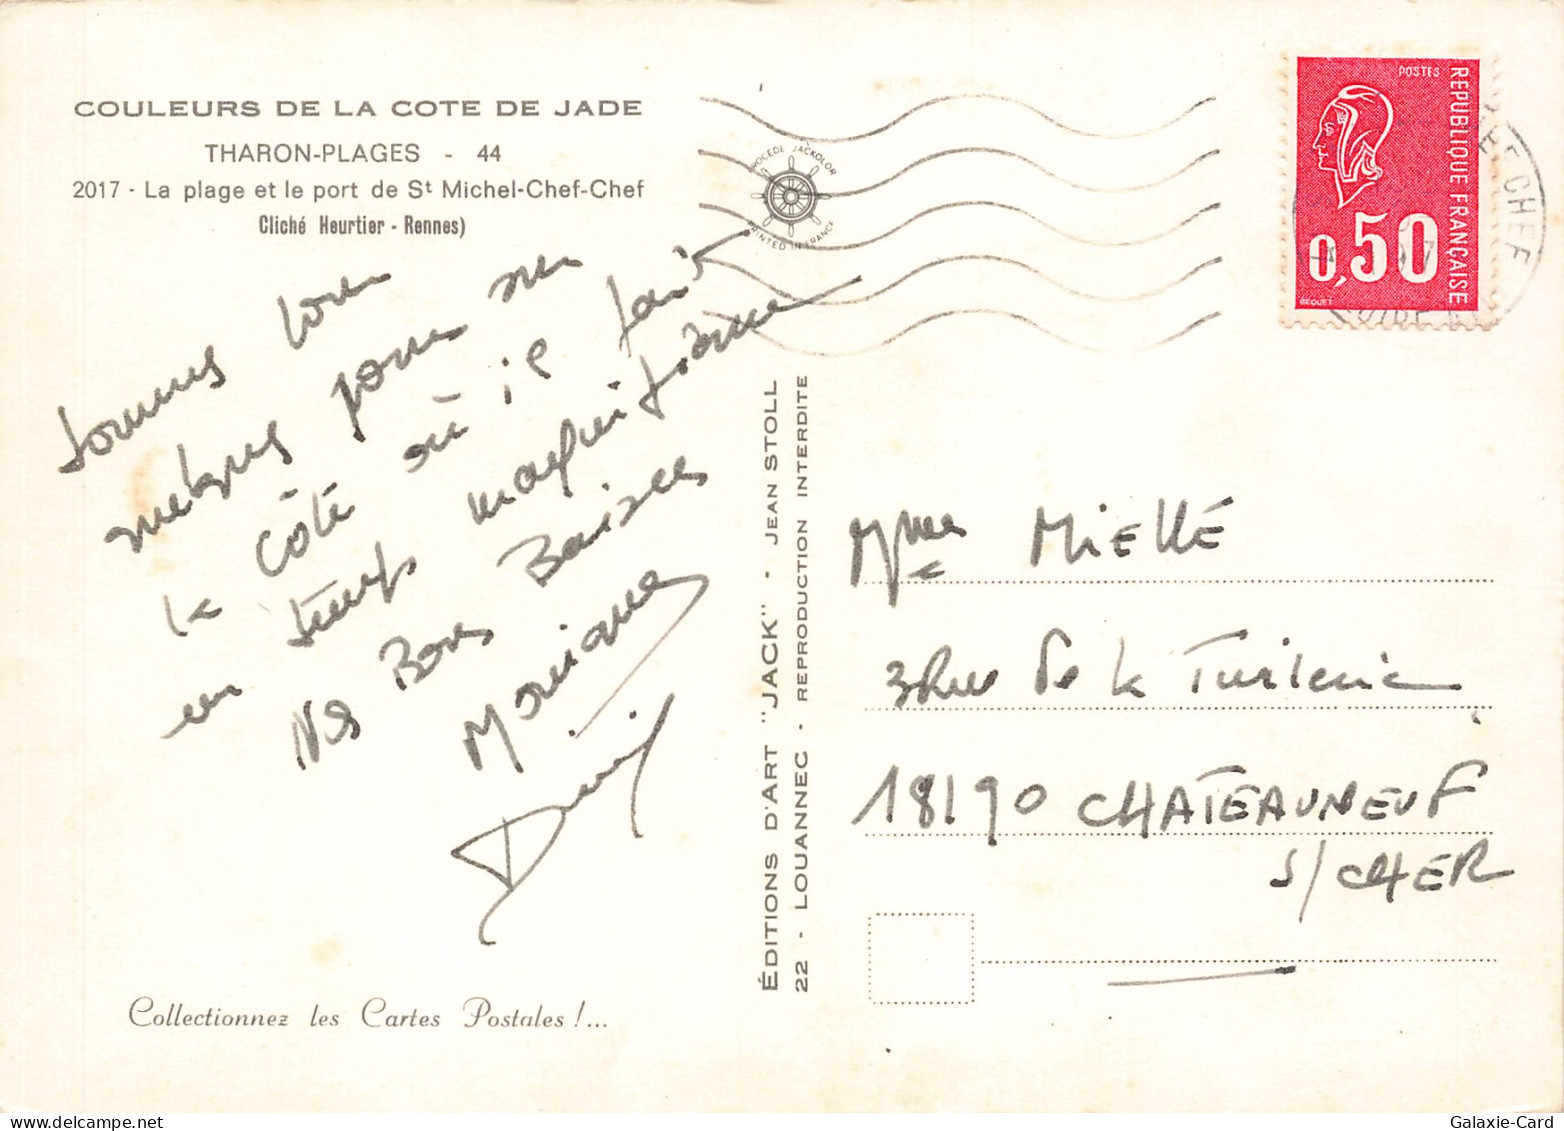 COULEURS DE LA COTE DE JADE
THARON-PLAGES - 44
2017 - La plage et le port de St Michel-Chef-Chef
Cliché Heurtier - Rennes)
PROCEDE JACKOLOR
PRINTED IN FRANCE
POSTES
REPUBLIQUE FRANÇAISE
0,50
BEQUET
CHEF CHEF
sommes
quelques jours sur
la côte où il fait
un temps magnifique
Nos Bons Baisers
Monique
Daniel
ÉDITIONS D'ART "JACK" - JEAN STOLL
22 - LOUANNEC - REPRODUCTION INTERDITE
Mme MIELLÉ
3 Rue de la Tuilerie
18190 CHATEAUNEUF
S/CHER
Collectionnez les Cartes Postales !...
Galaxie-Card